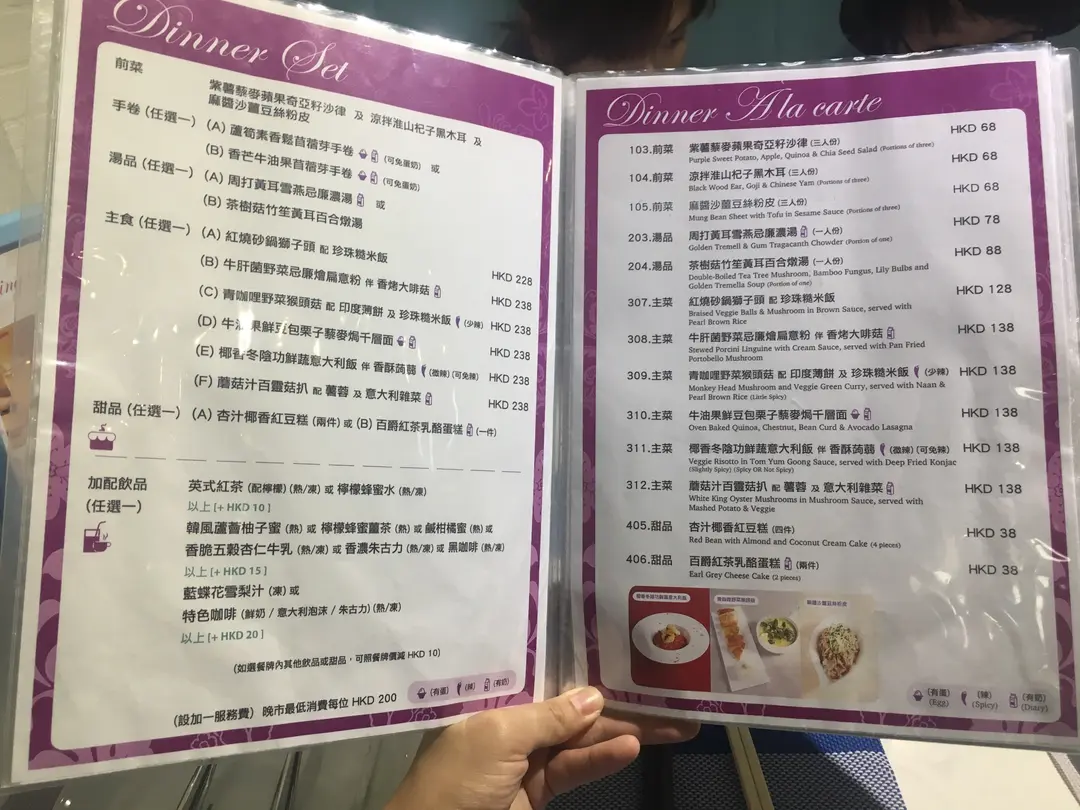 Dinner Set
前菜
紫薯藜麥蘋果奇亞籽沙律 及 涼拌淮山杞子黑木耳 及
麻醬沙薑豆絲粉皮
手卷 (任選一) (A) 蘆筍素香鬆苜蓿芽手卷 (可免蛋奶) 或
(B) 香芒牛油果苜蓿芽手卷 (可免蛋奶)
湯品 (任選一) (A) 周打黃耳雪燕忌廉濃湯 或
(B) 茶樹菇竹笙黃耳百合燉湯
主食 (任選一) (A) 紅燒砂鍋獅子頭 配 珍珠糙米飯 HKD 228
(B) 牛肝菌野菜忌廉燴扁意粉 伴 香烤大啡菇 HKD 238
(C) 青咖哩野菜猴頭菇 配 印度薄餅 及 珍珠糙米飯 (少辣) HKD 238
(D) 牛油果鮮豆包栗子藜麥焗千層面 HKD 238
(E) 椰香冬陰功鮮蔬意大利飯 伴 香酥蒟蒻 (微辣) (可免辣) HKD 238
(F) 蘑菇汁百靈菇扒 配 薯蓉 及 意大利雜菜 HKD 238
甜品 (任選一) (A) 杏汁椰香紅豆糕 (兩件) 或 (B) 百爵紅茶乳酪蛋糕 (一件)
加配飲品
(任選一)
英式紅茶 (配檸檬) (熱/凍) 或 檸檬蜂蜜水 (熱/凍)
以上 [+ HKD 10 ]
韓風蘆薈柚子蜜 (熱) 或 檸檬蜂蜜薑茶 (熱) 或 鹹柑橘蜜 (熱) 或
香脆五穀杏仁牛乳 (熱/凍) 或 香濃朱古力 (熱/凍) 或 黑咖啡 (熱/凍)
以上 [+ HKD 15 ]
藍蝶花雪梨汁 (凍) 或
特色咖啡 (鮮奶 / 意大利泡沫 / 朱古力) (熱/凍)
以上 [+ HKD 20 ]
(如選餐牌內其他飲品或甜品，可照餐牌價減 HKD 10)
(有蛋) (辣) (有奶)
(設加一服務費) 晚市最低消費每位 HKD 200
Dinner A la carte
103.前菜 紫薯藜麥蘋果奇亞籽沙律 (三人份) HKD 68
Purple Sweet Potato, Apple, Quinoa & Chia Seed Salad (Portions of three)
104.前菜 涼拌淮山杞子黑木耳 (三人份) HKD 68
Black Wood Ear, Goji & Chinese Yam (Portions of three)
105.前菜 麻醬沙薑豆絲粉皮 (三人份) HKD 68
Mung Bean Sheet with Tofu in Sesame Sauce (Portions of three)
203.湯品 周打黃耳雪燕忌廉濃湯 (一人份) HKD 78
Golden Tremell & Gum Tragacanth Chowder (Portion of one)
204.湯品 茶樹菇竹笙黃耳百合燉湯 (一人份) HKD 88
Double-Boiled Tea Tree Mushroom, Bamboo Fungus, Lily Bulbs and
Golden Tremella Soup (Portion of one)
307.主菜 紅燒砂鍋獅子頭 配 珍珠糙米飯 HKD 128
Braised Veggie Balls & Mushroom in Brown Sauce, served with
Pearl Brown Rice
308.主菜 牛肝菌野菜忌廉燴扁意粉 伴 香烤大啡菇 HKD 138
Stewed Porcini Linguine with Cream Sauce, served with Pan Fried
Portobello Mushroom
309.主菜 青咖哩野菜猴頭菇 配 印度薄餅 及 珍珠糙米飯 (少辣) HKD 138
Monkey Head Mushroom and Veggie Green Curry, served with Naan &
Pearl Brown Rice (Little Spicy)
310.主菜 牛油果鮮豆包栗子藜麥焗千層面 HKD 138
Oven Baked Quinoa, Chestnut, Bean Curd & Avocado Lasagna
311.主菜 椰香冬陰功鮮蔬意大利飯 伴 香酥蒟蒻 (微辣) (可免辣) HKD 138
Veggie Risotto in Tom Yum Goong Sauce, served with Deep Fried Konjac
(Slightly Spicy) (Spicy OR Not Spicy)
312.主菜 蘑菇汁百靈菇扒 配 薯蓉 及 意大利雜菜 HKD 138
White King Oyster Mushrooms in Mushroom Sauce, served with
Mashed Potato & Veggie
405.甜品 杏汁椰香紅豆糕 (四件) HKD 38
Red Bean with Almond and Coconut Cream Cake (4 pieces)
406.甜品 百爵紅茶乳酪蛋糕 (兩件) HKD 38
Earl Grey Cheese Cake (2 pieces)
椰香冬陰功鮮蔬意大利飯
青咖哩野菜猴頭菇
麻醬沙薑豆絲粉皮
(有蛋) (辣) (有奶)
(Egg) (Spicy) (Diary)